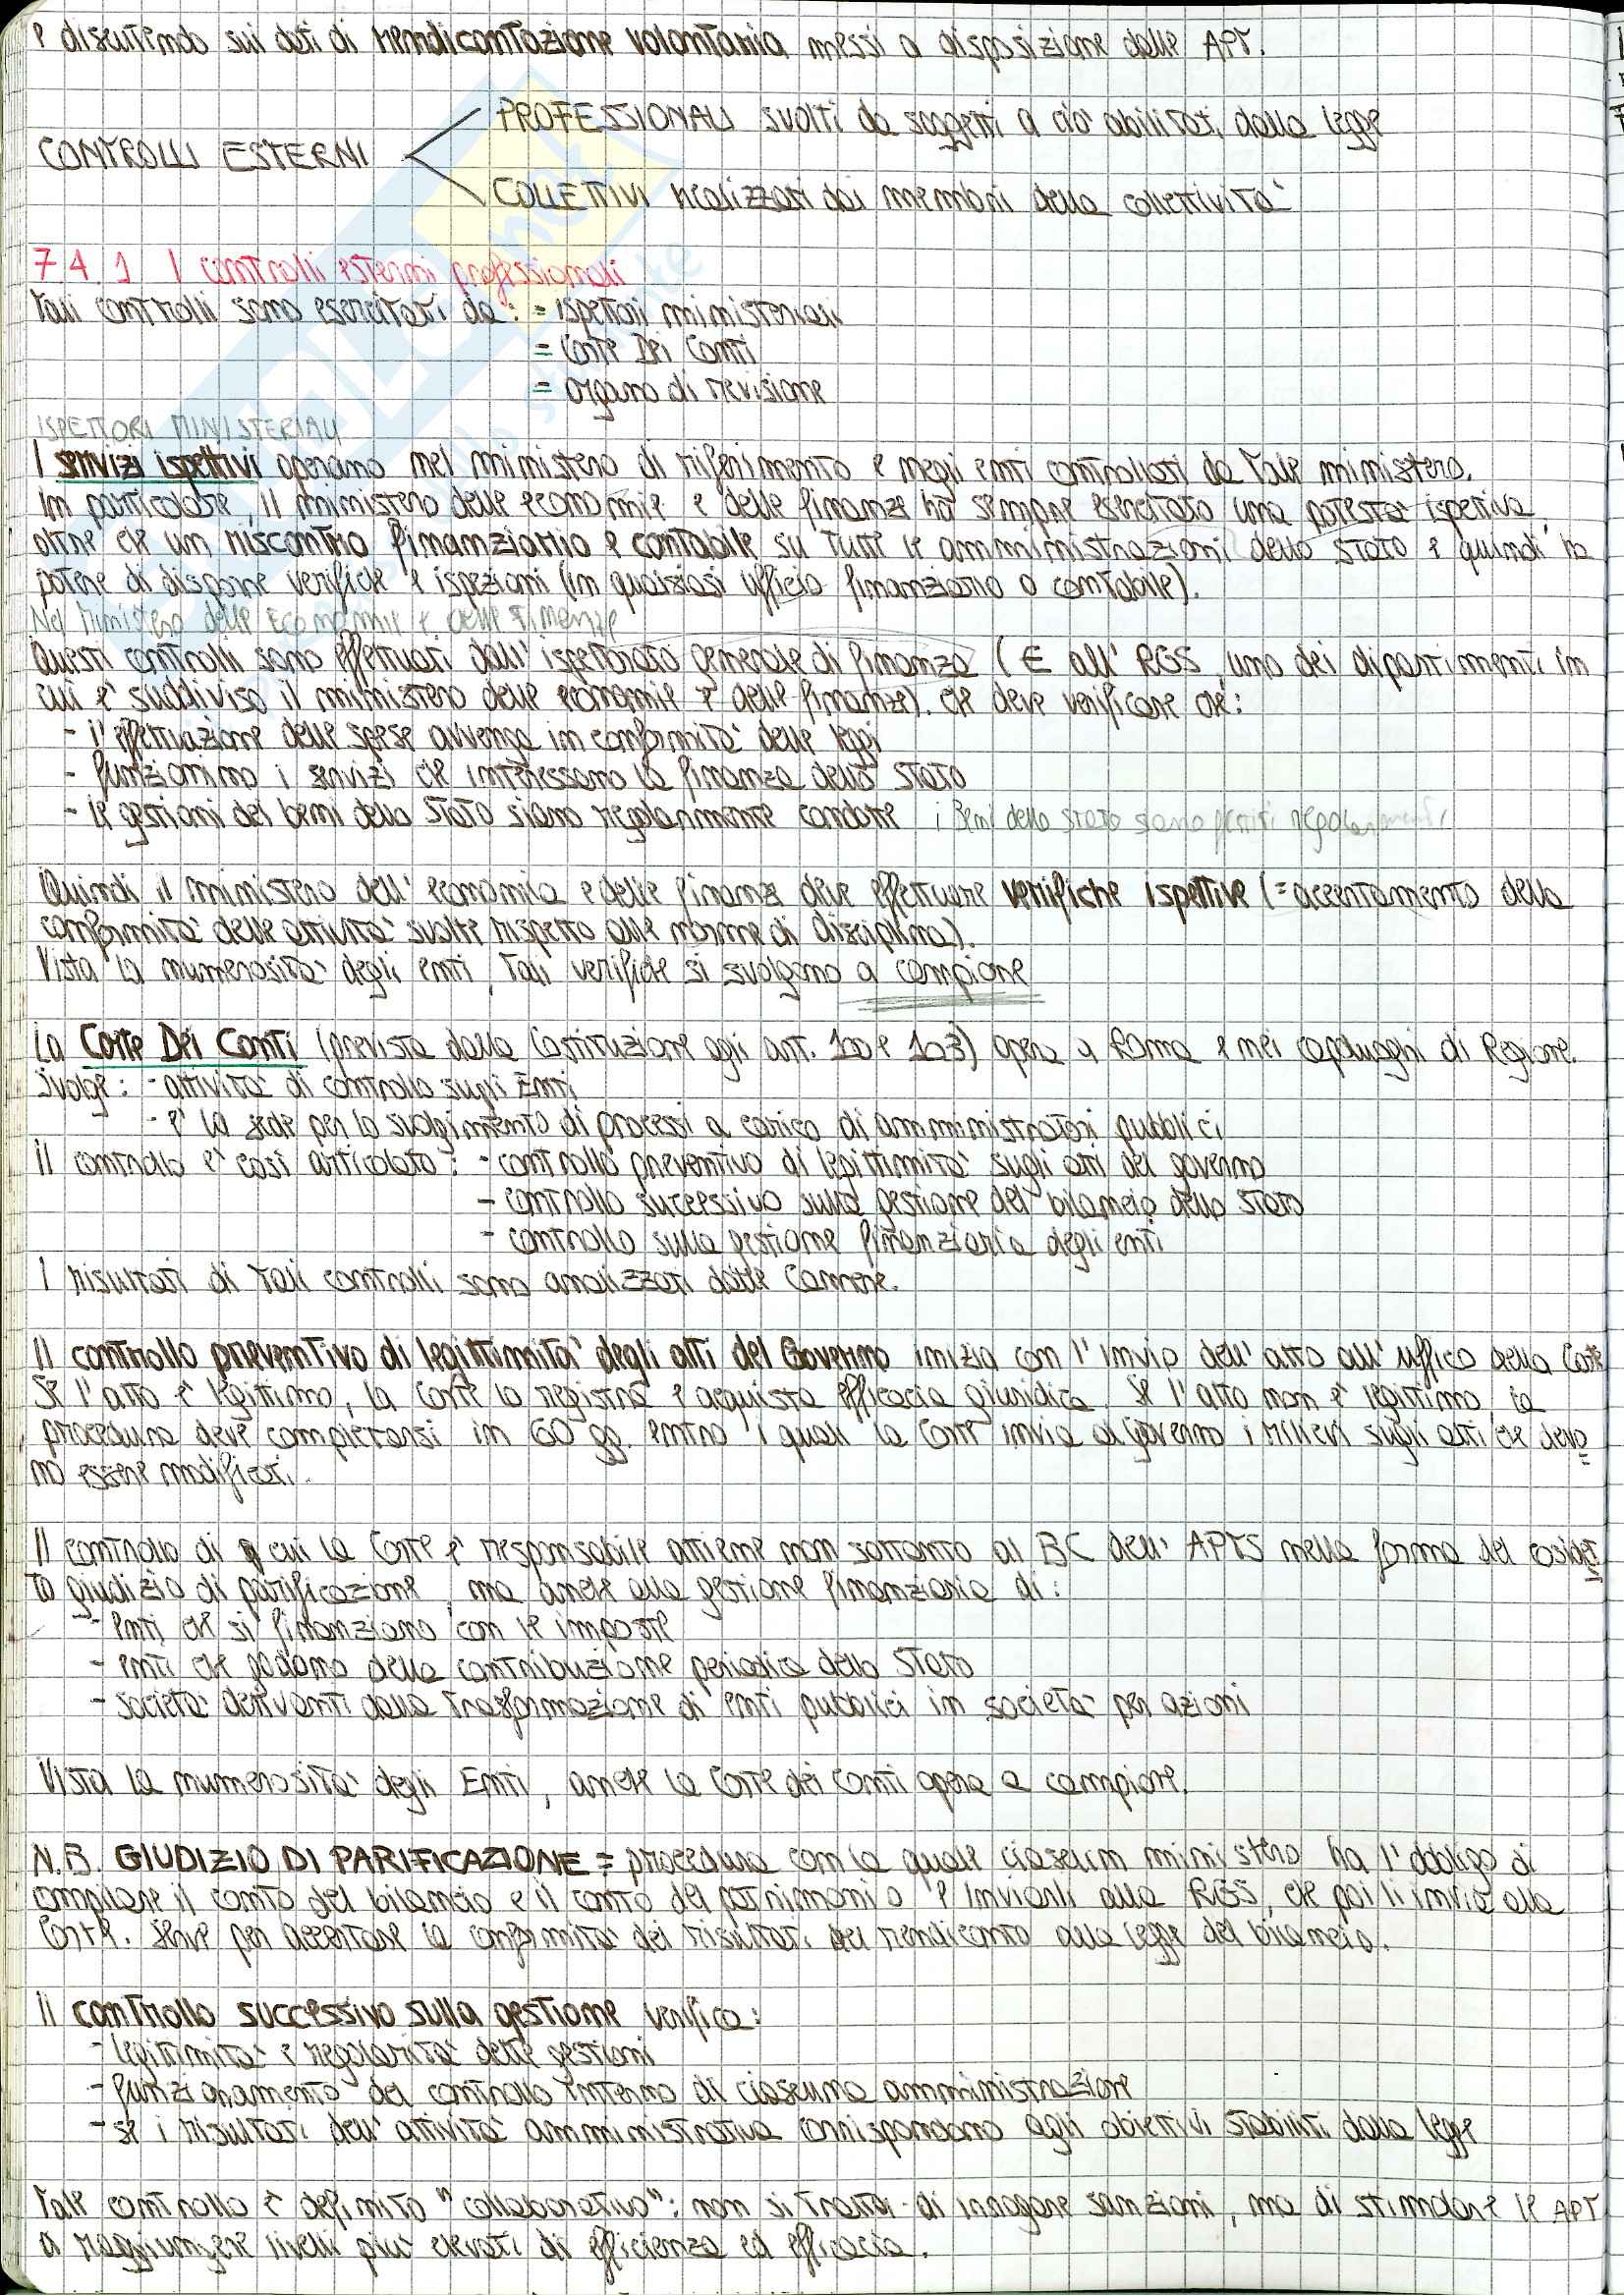 e discutendo sui dati di rendicontazione volontaria messi a disposizione delle APT.
CONTROLLI ESTERNI
PROFESSIONALI svolti da soggetti a ciò abilitati dalla legge
COLLETTIVI realizzati dai membri della collettività
7.4.1 I controlli esterni professionali
Tali controlli sono esercitati da: = ispettori ministeriali
= Corte Dei Conti
= organo di revisione
ISPETTORI MINISTERIALI
I servizi ispettivi operano nel ministero di riferimento e negli enti controllati da tale ministero.
In particolare, il ministero delle economie e delle finanze ha sempre esercitato una potestà ispettiva,
oltre che un riscontro finanziario e contabile su tutte le amministrazioni dello stato e quindi ha
potere di disporre verifiche e ispezioni (in qualsiasi ufficio finanziario o contabile).
Nel Ministero delle Economie e delle Finanze
Questi controlli sono effettuati dall'ispettorato generale di finanza (∈ all'RGS, uno dei dipartimenti in
cui è suddiviso il ministero delle economie e delle finanze). che deve verificare che:
- l'effettuazione delle spese avvenga in conformità delle leggi
- funzionino i servizi che interessano la finanza dello stato
- le gestioni dei beni dello stato siano regolarmente condotte i beni dello stato siano gestiti regolarmente
Quindi il ministero dell'economia e delle finanze deve effettuare verifiche ispettive (= accertamento della
conformità delle attività svolte rispetto alle norme di disciplina).
Vista la numerosità degli enti, tali verifiche si svolgono a campione
La Corte Dei Conti (prevista dalla Costituzione agli art. 100 e 103) opera a Roma e nei capoluoghi di Regione.
Svolge: - attività di controllo sugli Enti
- è la sede per lo svolgimento di processi a carico di amministratori pubblici
Il controllo è così articolato: - controllo preventivo di legittimità sugli atti del governo
- controllo successivo sulla gestione del bilancio dello stato
- controllo sulla gestione finanziaria degli enti
I risultati di tali controlli sono analizzati dalle Camere.
Il controllo preventivo di legittimità degli atti del Governo inizia con l'invio dell'atto all'ufficio della Corte
Se l'atto è legittimo, la Corte lo registra e acquista efficacia giuridica. Se l'atto non è legittimo, la
procedura deve completarsi in 60 gg. entro i quali la Corte invia al Governo i rilievi sugli atti che devo
no essere modificati.
Il controllo di cui la Corte è responsabile attiene non soltanto al BC dell'APTS nella forma del cosidet
to giudizio di parificazione, ma anche alla gestione finanziaria di:
- enti che si finanziano con le imposte
- enti che godono della contribuzione periodica dello Stato
- società derivanti dalla trasformazione di enti pubblici in società per azioni
Vista la numerosità degli Enti, anche la Corte dei Conti opera a campione.
N.B. GIUDIZIO DI PARIFICAZIONE = procedura con la quale ciascun ministero ha l'obbligo di
compilare il conto del bilancio e il conto del patrimonio e inviarli alla RGS, che poi li invia alla
Corte. Serve per accertare la conformità dei risultati del rendiconto alla legge del bilancio.
Il controllo successivo sulla gestione verifica:
- legittimità e regolarità delle gestioni
- funzionamento del controllo interno di ciascuna amministrazione
- se i risultati dell'attività amministrativa corrispondono agli obiettivi stabiliti dalla legge
Tale controllo è definito "collaborativo": non si tratta di irrogare sanzioni, ma di stimolare le APT
a raggiungere livelli più elevati di efficienza ed efficacia.